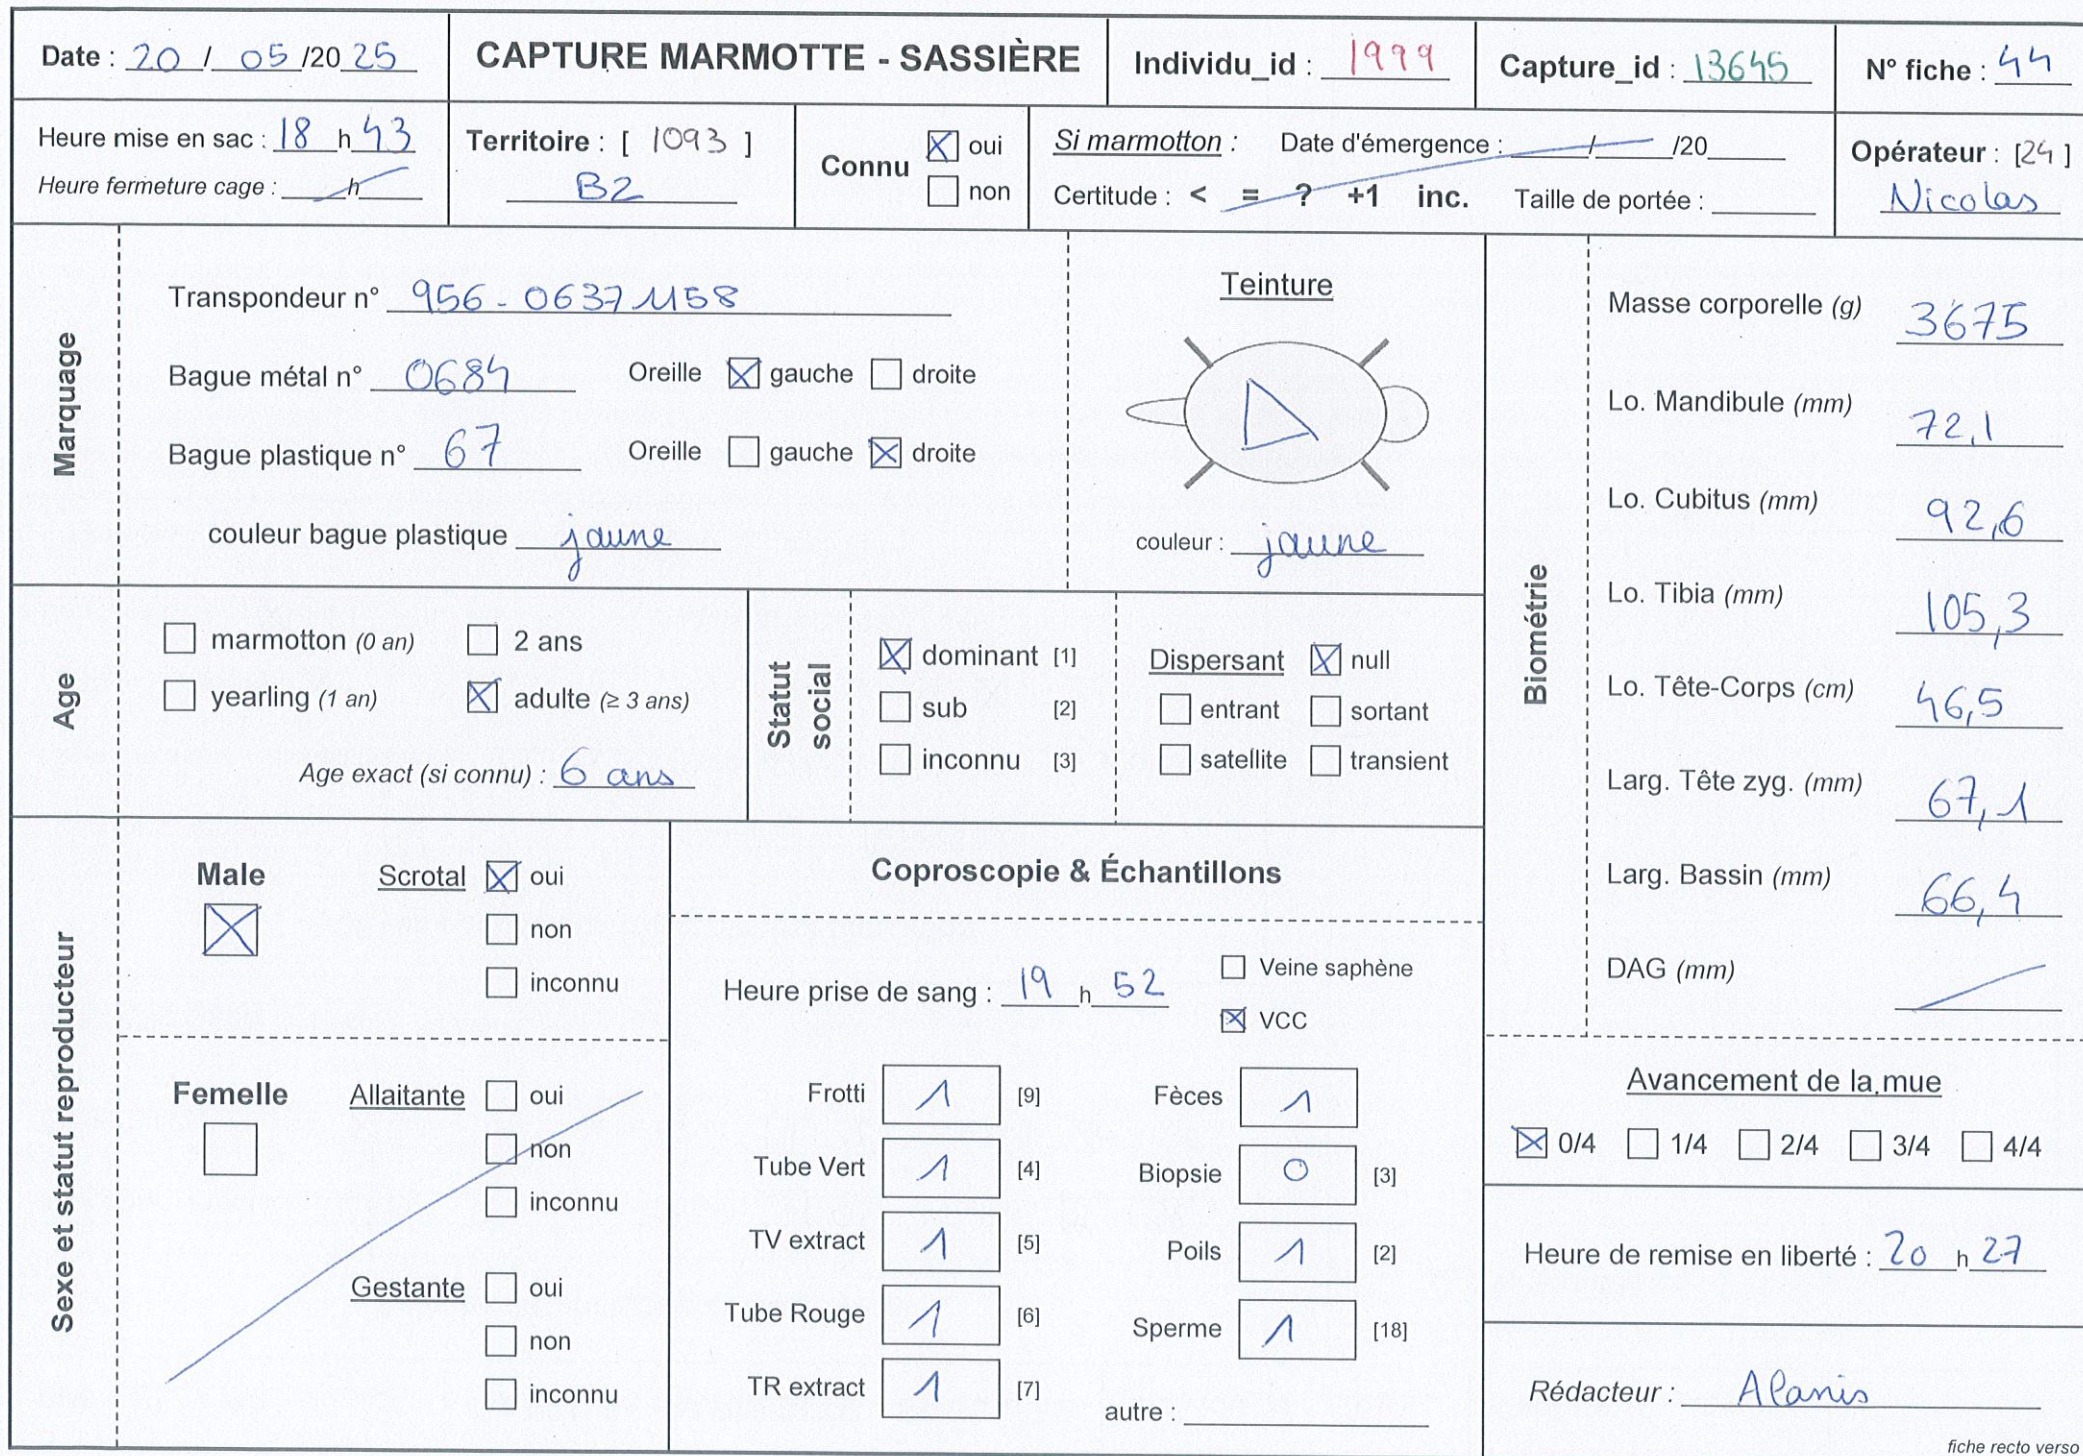 Date : 20 / 05 /20 25
CAPTURE MARMOTTE - SASSIÈRE
Individu_id : 1999
Capture_id : 13645
N° fiche : 44
Heure mise en sac : 18 h 43
Heure fermeture cage : h
Territoire : [ 1093 ]
B2
Connu
oui
non
Si marmotton : Date d'émergence : / /20
Certitude : < = ? +1 inc. Taille de portée :
Opérateur : [24]
Nicolas
Marquage
Transpondeur n° 956-06371158
Bague métal n° 0684 Oreille gauche droite
Bague plastique n° 67 Oreille gauche droite
couleur bague plastique jaune
Teinture
couleur : jaune
Age
marmotton (0 an) 2 ans
yearling (1 an) adulte (≥ 3 ans)
Age exact (si connu) : 6 ans
Statut
social
dominant [1]
sub [2]
inconnu [3]
Dispersant null
entrant sortant
satellite transient
Biométrie
Masse corporelle (g) 3675
Lo. Mandibule (mm) 72,1
Lo. Cubitus (mm) 92,6
Lo. Tibia (mm) 105,3
Lo. Tête-Corps (cm) 46,5
Larg. Tête zyg. (mm) 67,1
Larg. Bassin (mm) 66,4
DAG (mm)
Sexe et statut reproducteur
Male Scrotal oui
non
inconnu
Femelle Allaitante oui
non
inconnu
Gestante oui
non
inconnu
Coproscopie & Échantillons
Heure prise de sang : 19 h 52
Veine saphène
VCC
Frotti 1 [9] Fèces 1
Tube Vert 1 [4] Biopsie 0 [3]
TV extract 1 [5] Poils 1 [2]
Tube Rouge 1 [6] Sperme 1 [18]
TR extract 1 [7] autre :
Avancement de la mue
0/4 1/4 2/4 3/4 4/4
Heure de remise en liberté : 20 h 27
Rédacteur : Alanis
fiche recto verso